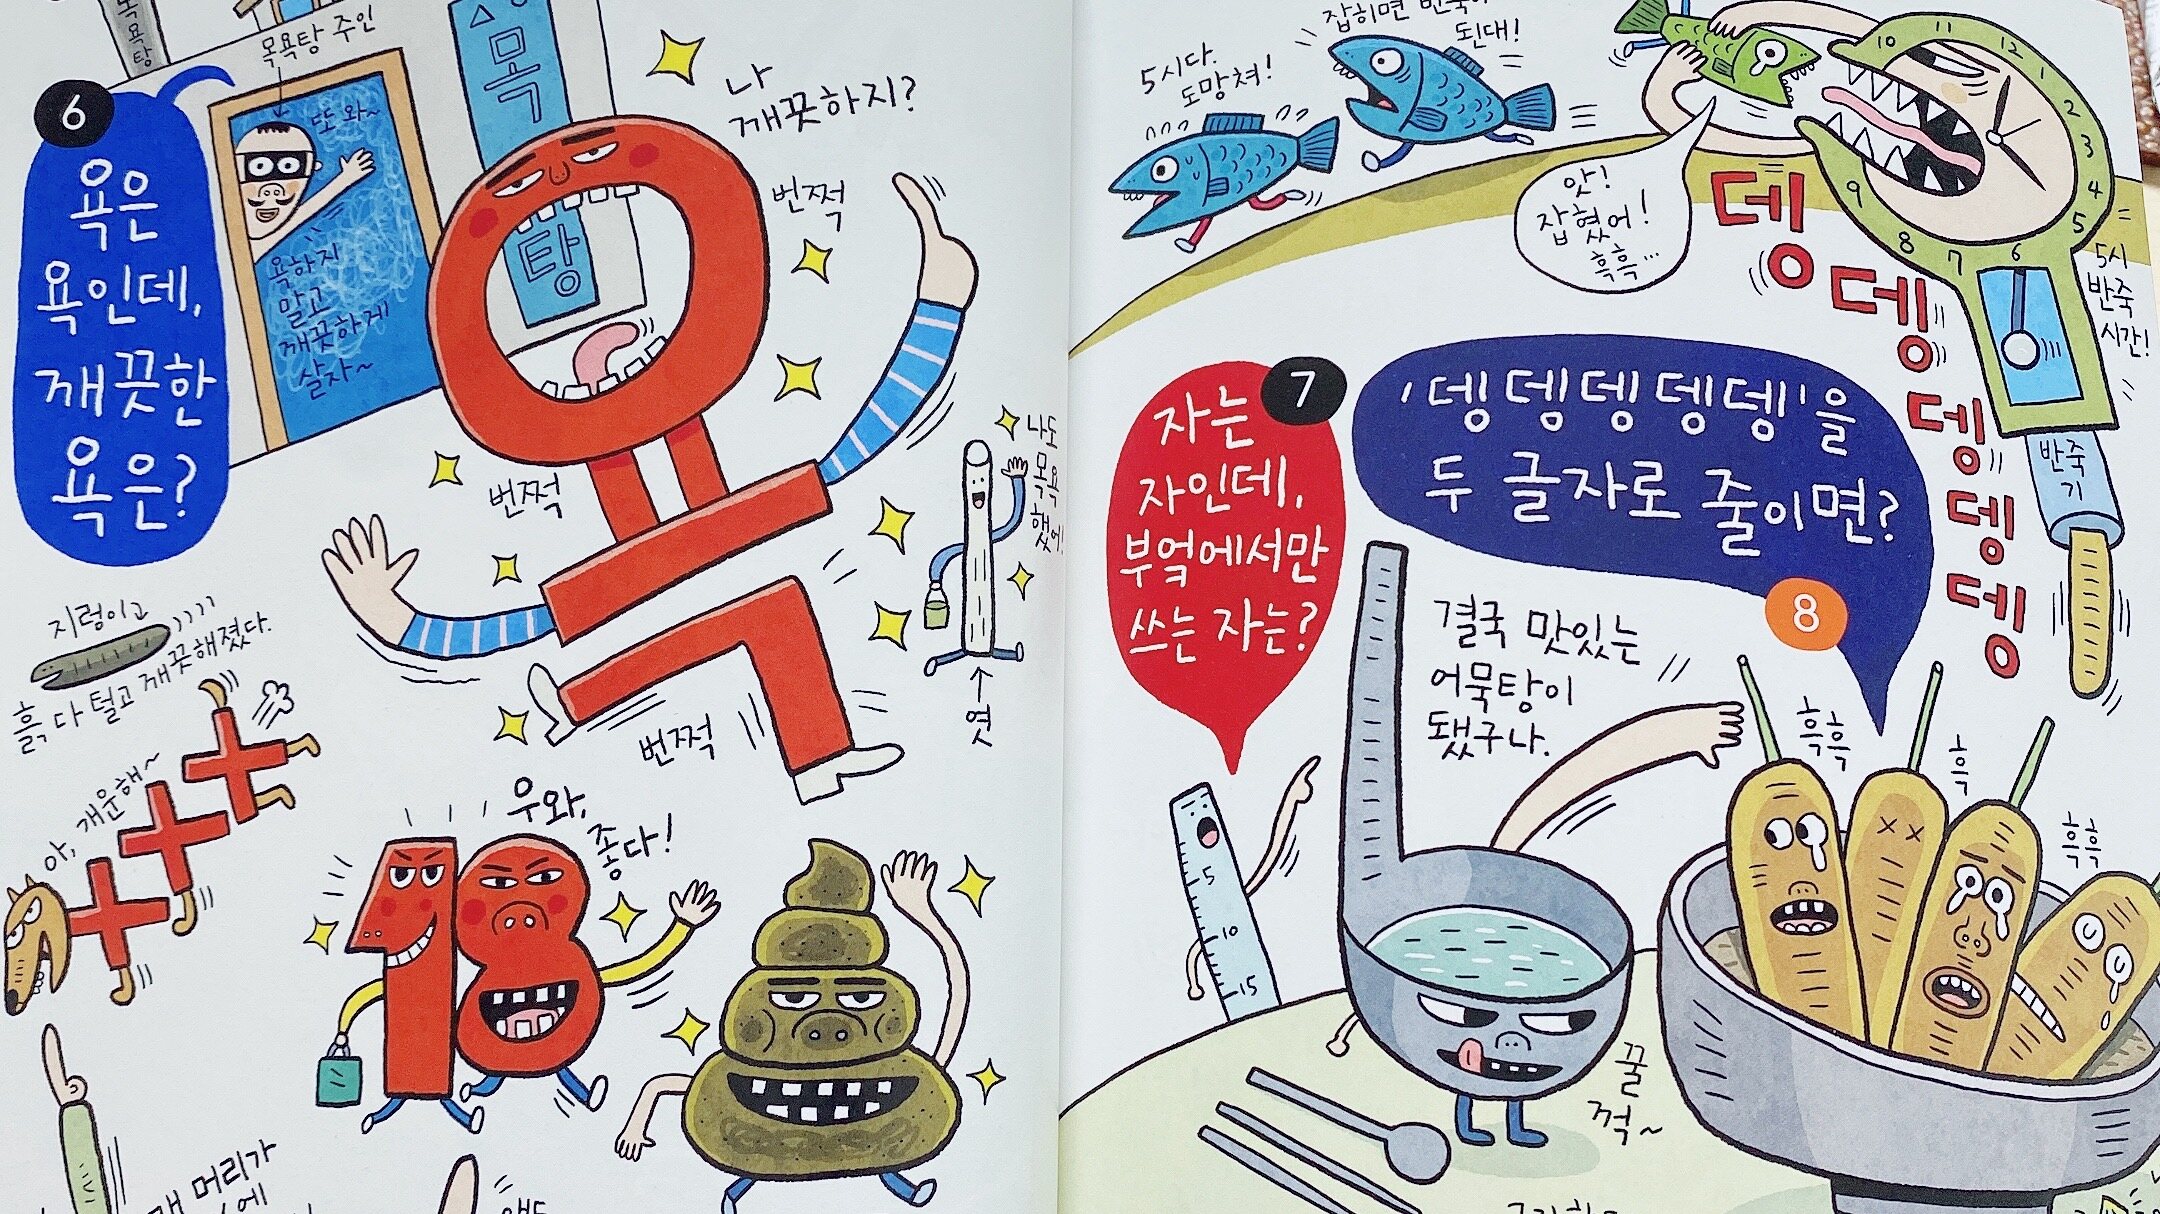 목욕탕
목욕탕 주인
또 와~
욕하지
말고
깨끗하게
살자~
6
욕은
욕인데,
깨끗한
욕은?
목
탕
욕
나
깨끗하지?
번쩍
번쩍
번쩍
나도
목욕
했어!
엿
지렁이고
흙 다 털고 깨끗해졌다.
아, 개운해~
18
우와,
좋다!
머리가
5시다.
도망쳐!
잡히면
된대!
앗!
잡혔어!
흑흑...
10 11 12 1 2 3 4 5 6 7 8 9
뎅뎅뎅뎅뎅뎅
5시
반죽
시간!
반죽
기
7
자는
자인데,
부엌에서만
쓰는 자는?
'뎅뎀뎅뎅뎅'을
두 글자로 줄이면?
8
결국 맛있는
어묵탕이
됐구나.
5
10
15
흑흑
흑
흑흑
꿀
꺽~